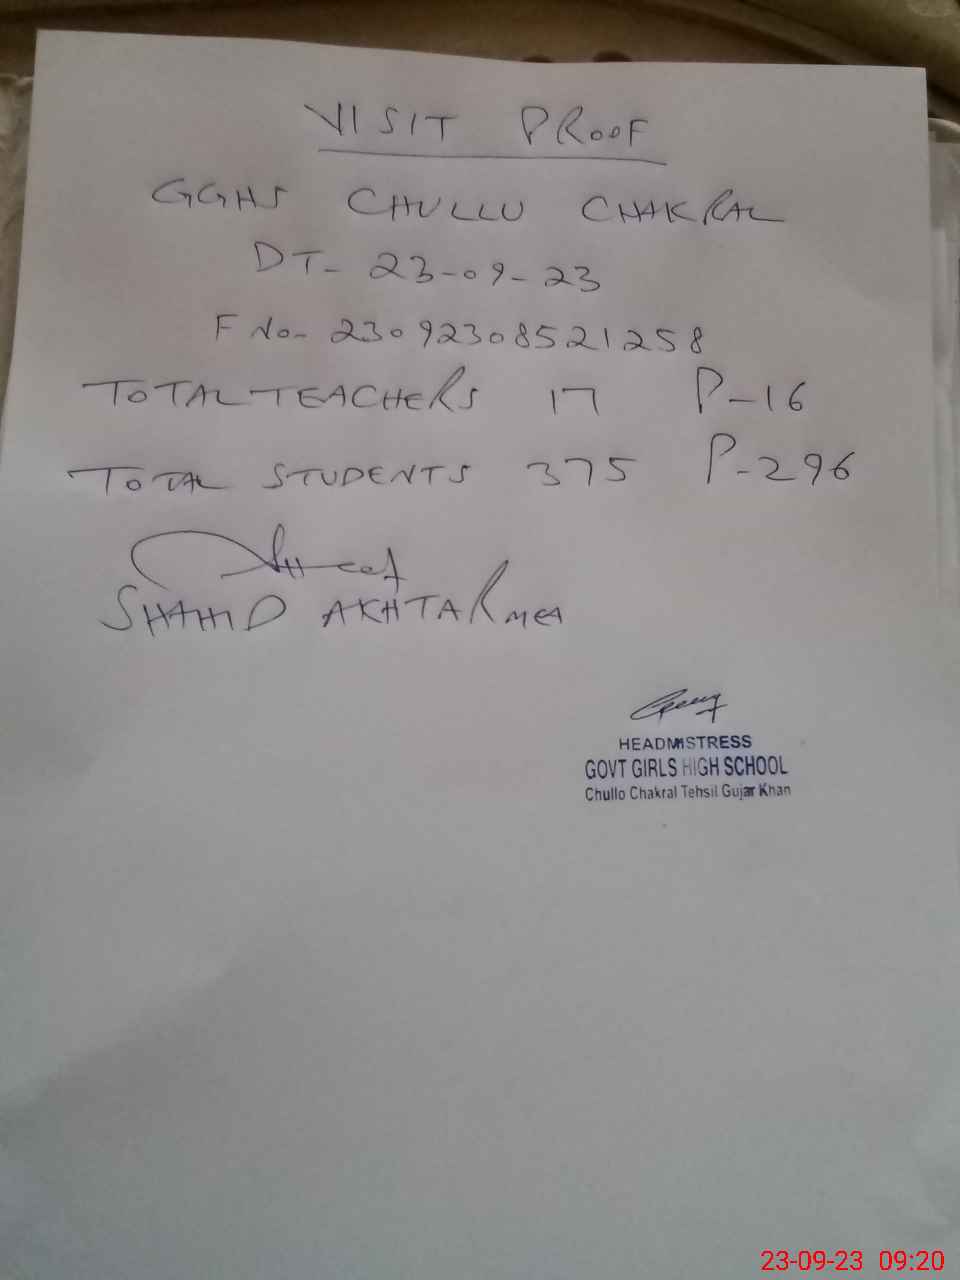 VISIT PROOF
GGHS CHULLU CHAKRAL
DT- 23-09-23
F No- 23092308521258
TOTAL TEACHERS 17 P-16
TOTAL STUDENTS 375 P-296
SHAHID AKHTAR MEA
HEADMISTRESS
GOVT GIRLS HIGH SCHOOL
Chullo Chakral Tehsil Gujar Khan
23-09-23 09:20